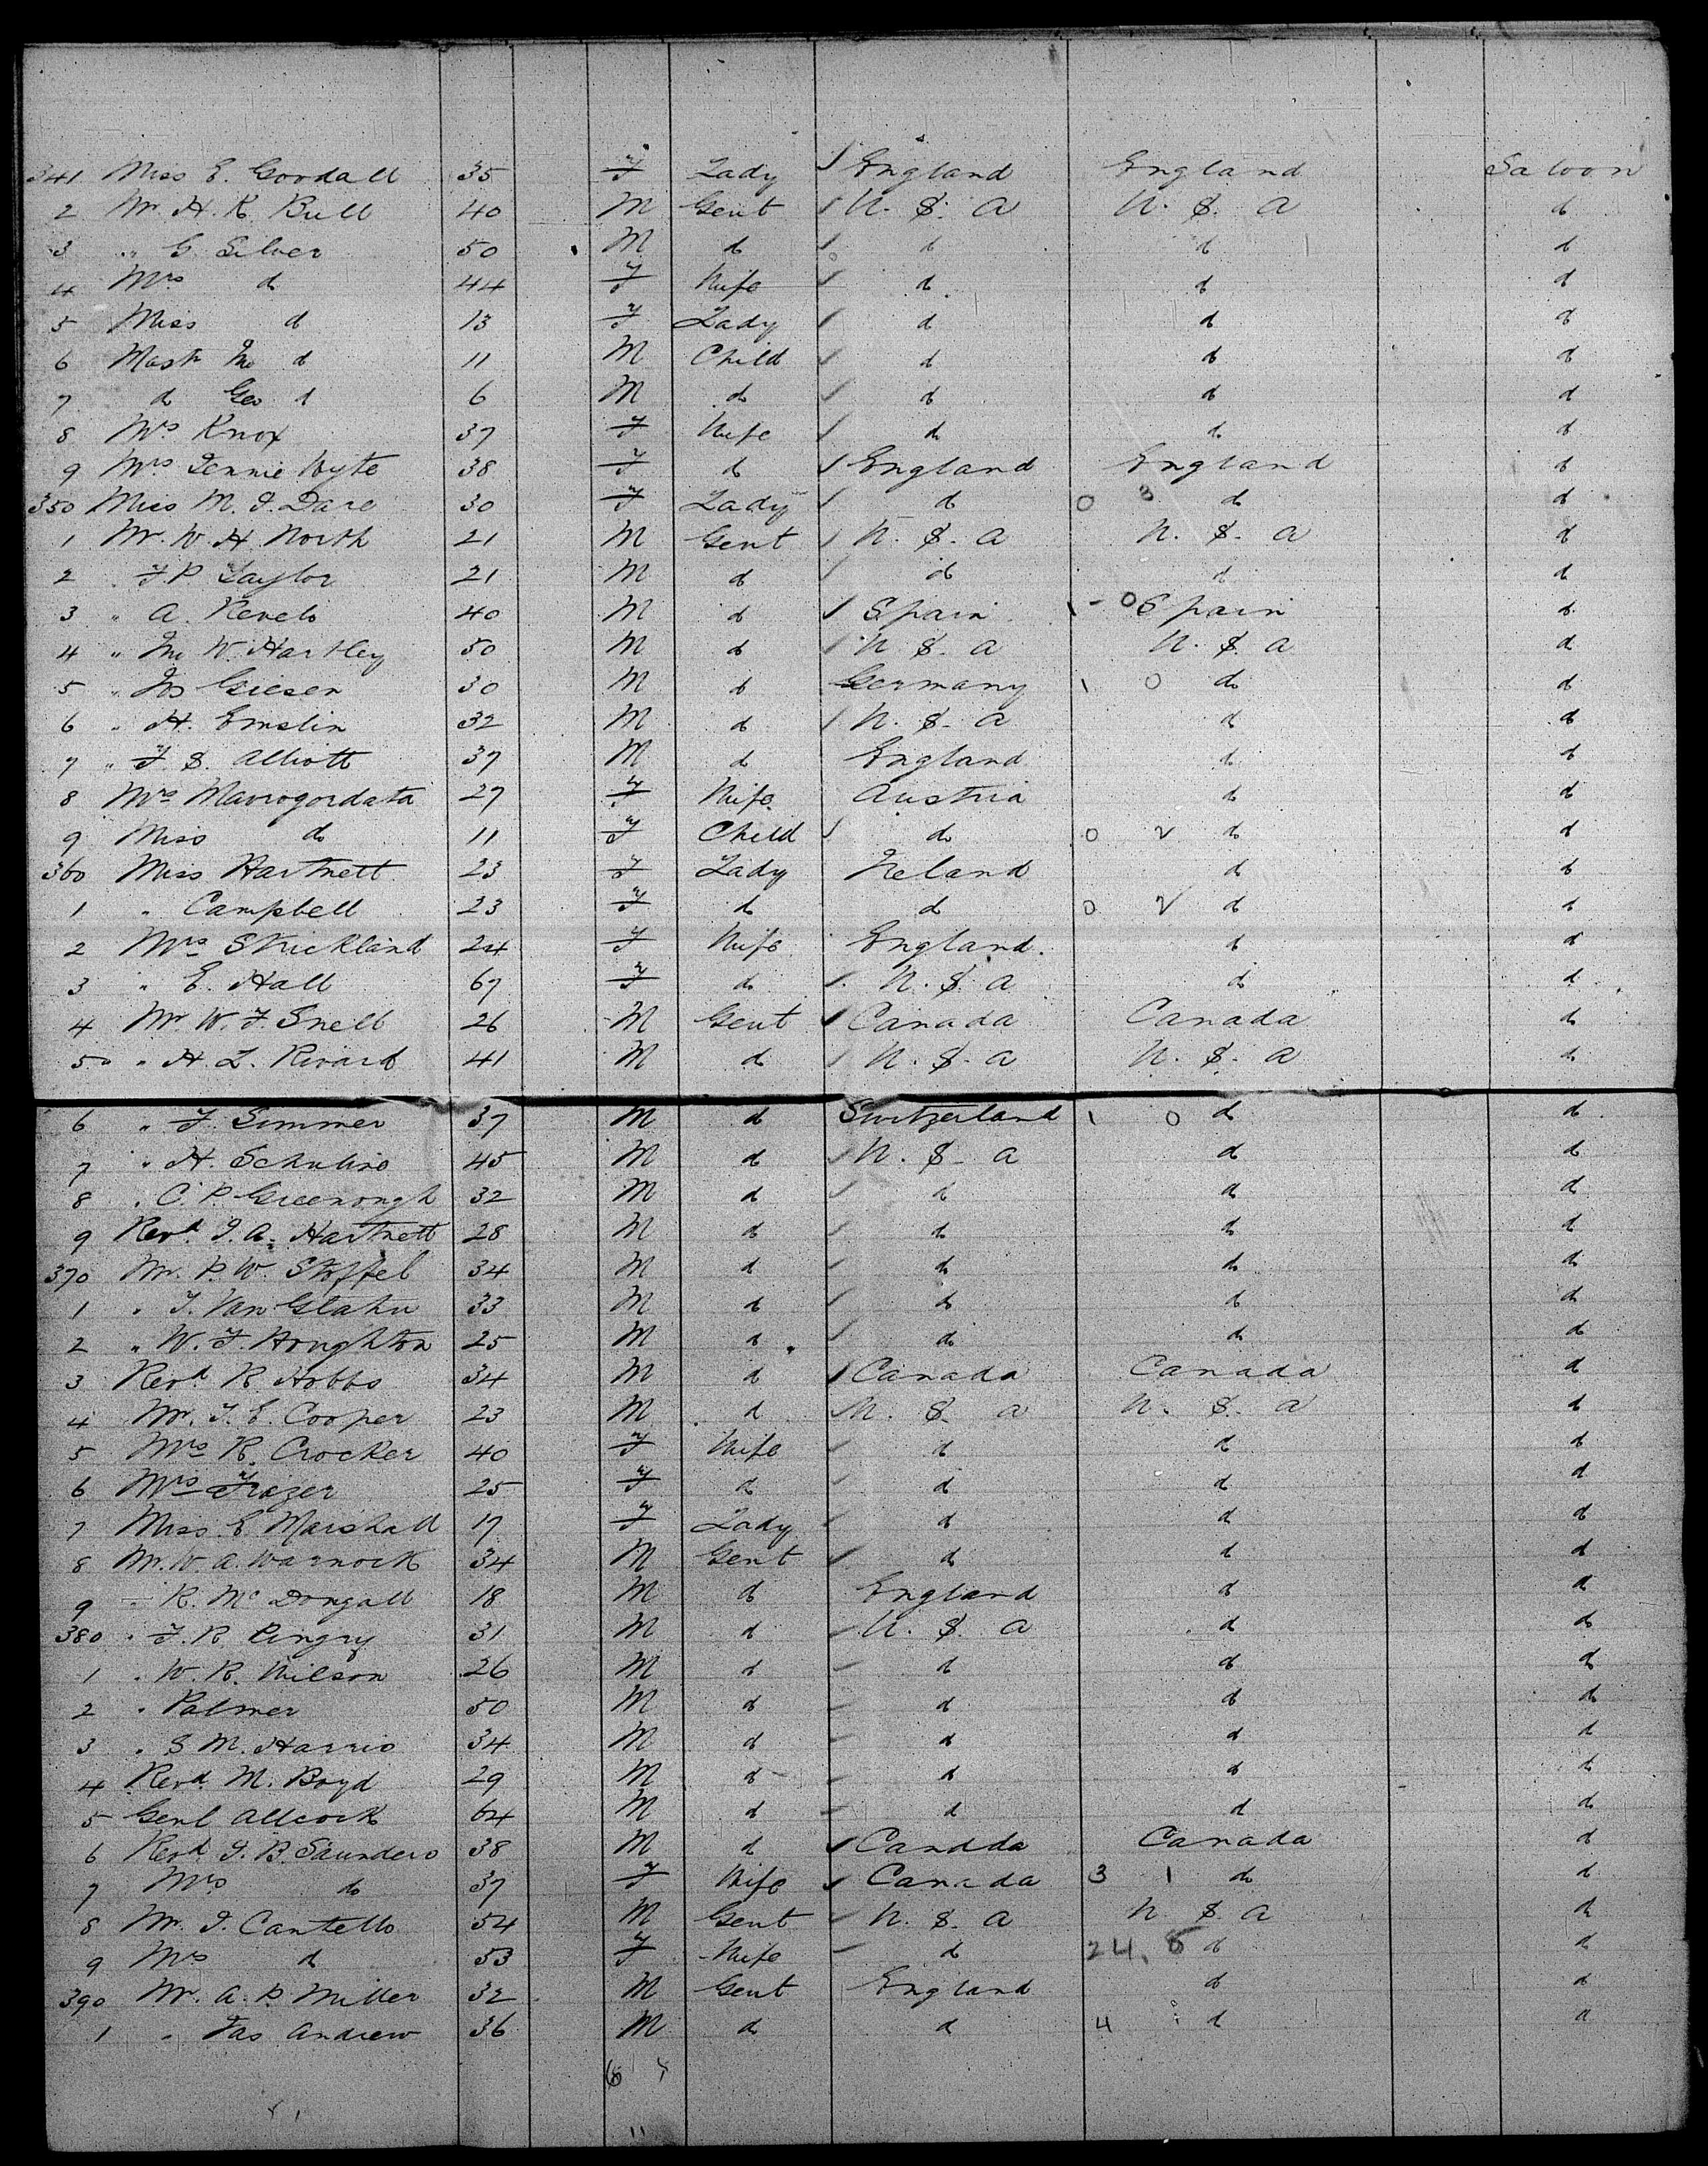 341 Miss E. Goodall 35 F Lady England England Saloon
2 Mr H. R. Bull 40 M Gent U. S. A U. S. A do
3 " G. Silver 50 M do do do do
4 Mrs do 44 F Wife do do do
5 Miss do 13 F Lady do do do
6 Mastr Jno do 11 M Child do do do
7 do Geo do 6 M do do do do
8 Mrs Knox 37 F Wife do do do
9 Mrs Jennie Wyte 38 F do England England do
350 Miss M. J. Dare 30 F Lady do 0 3 do do
1 Mr. W. H. North 21 M Gent U. S. A U. S. A do
2 " F. P. Taylor 21 M do do do do
3 " A. Revels 40 M do Spain 1 - 0 Spain do
4 " Jno W. Hartley 50 M do U. S. A U. S. A do
5 " Jos Giesen 30 M do Germany 1 0 do do
6 " H. Emslin 32 M do U. S. A do do
7 " F. S. Alliott 37 M do England do do
8 Mrs Mavrogordata 27 F Wife Austria do do
9 Miss do 11 F Child do 0 2 do do
360 Miss Hartnett 23 F Lady Ireland do do
1 " Campbell 23 F do do 0 2 do do
2 Mrs Strickland 24 F Wife England do do
3 " E. Hall 67 F do U. S. A do do
4 Mr W. F. Snell 26 M Gent Canada Canada do
5 " H. L. Rivard 41 M do U. S. A U. S. A do
6 " F. Simmer 37 M do Switzerland 1 0 do do
7 " H. 45 M do U. S. A do do
8 " C. P. Greenough 32 M do do do do
9 Revd. J. A. Hartnett 28 M do do do do
370 Mr. P. W. Stoffel 34 M do do do do
1 " J. Van Glahn 33 M do do do do
2 " W. F. Houghton 25 M do do do do
3 Revd R. Hobbs 34 M do Canada Canada do
4 Mr. J. E. Cooper 23 M do U. S. A U. S. A do
5 Mrs R. Crocker 40 F Wife do do do
6 Mrs Frazer 25 F do do do do
7 Miss E. Marshall 17 F Lady do do do
8 Mr. W. A. Warnock 34 M Gent do do do
9 " R. McDougall 18 M do England do do
380 " F. R. Pingry 31 M do U. S. A do do
1 " W. R. Wilson 26 M do do do do
2 " Palmer 50 M do do do do
3 " S. M. Harris 34 M do do do do
4 Revd. M. Boyd 29 M do do do do
5 Genl Allcock 64 M do do do do
6 Revd. J. B. Saunders 38 M do Canada Canada do
7 Mrs do 37 F Wife Canada 3 1 do do
8 Mr. J. Cantello 54 M Gent U. S. A U. S. A do
9 Mrs do 53 F Wife do 24. 5 do do
390 Mr. A. P. Miller 32 M Gent England do do
1 " Jas Andrew 36 M do do 4 do do